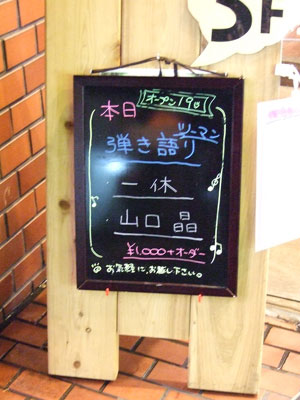 SF
本日
オープン19:
ツーマン
弾き語り
一休
山口 晶
¥1,000+オーダー
お気軽に、お越し下さい。